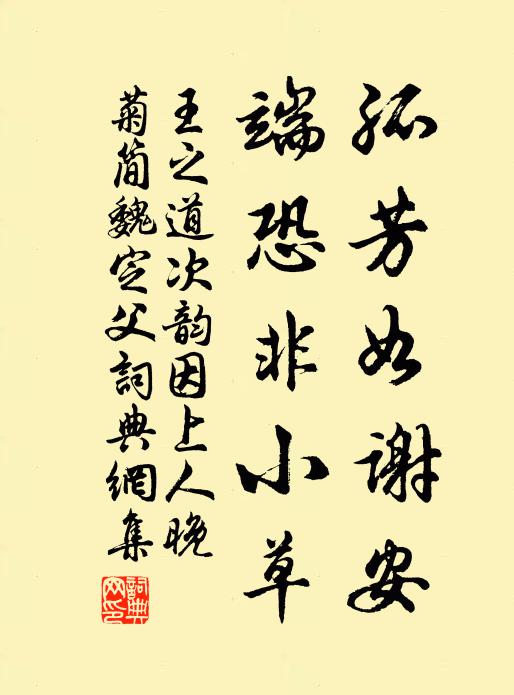 孤芳如谢安
端恐非小草
王之道次韵因上人晚
菊简魏定父詞典網集
詞典網印